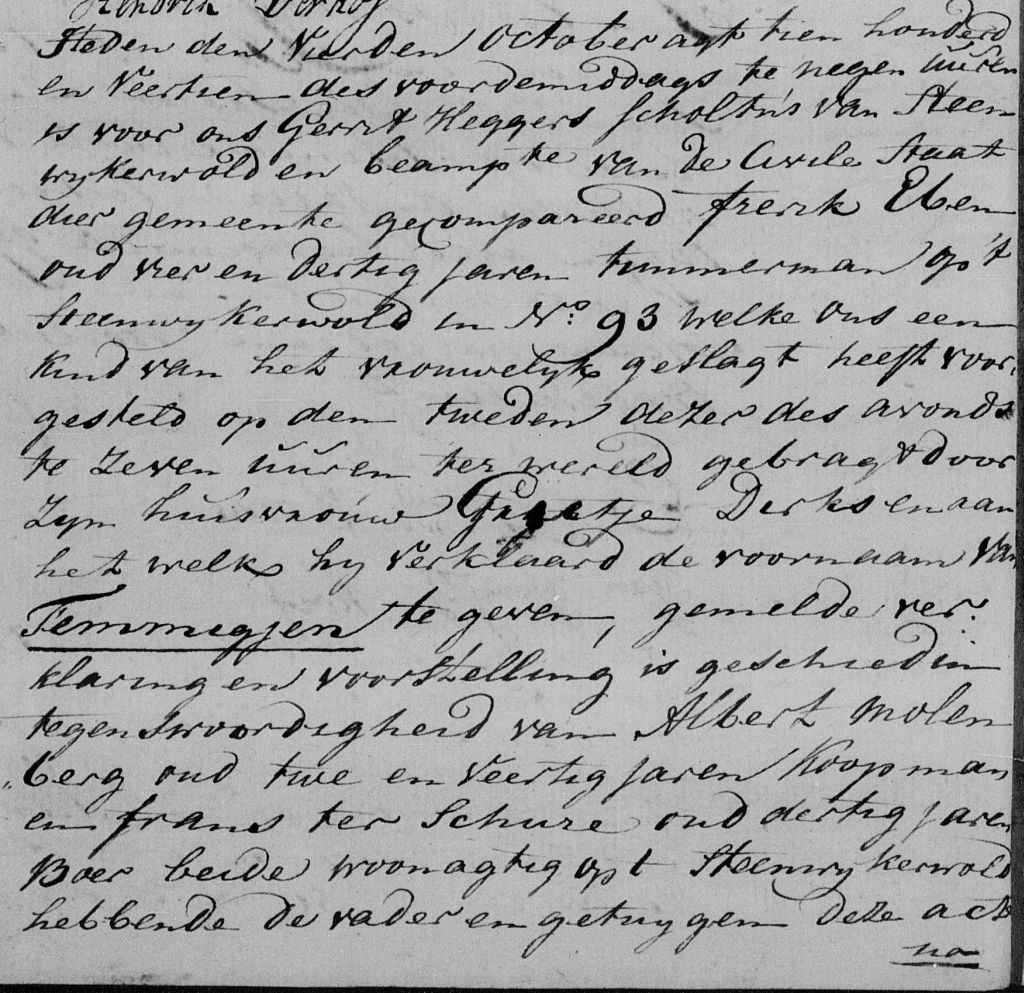 Hendrik
Heden den Vierden October agt tien honderd
en Veertien des voordemiddags te negen uuren
is voor ons Gerrit Heggers scholtus van Steen
wykerwold en beampte van de Civile Staat
dier gemeente gecompareerd frerik Eben
oud vier en dertig jaren timmerman op 't
Steenwykerwold in No. 93 welke ons een
kind van het vrouwelyk geslagt heeft voor
gesteld op den tweden dezer des avonds
te zeven uuren ter wereld gebragt door
zyn huisvrouw Derks en aan
het welk hy verklaard de voornaam van
Femmigjen te geven, gemelde ver:
klaring en voorstelling is geschied in
tegenswoordigheid van Albert Molen
"berg oud twe en Veertig jaren Koopman
en frans ter Schure oud dertig jaren
Boer beide woonagtig op t Steenwykerwold
hebbende de vader en getuygen deze acte
na